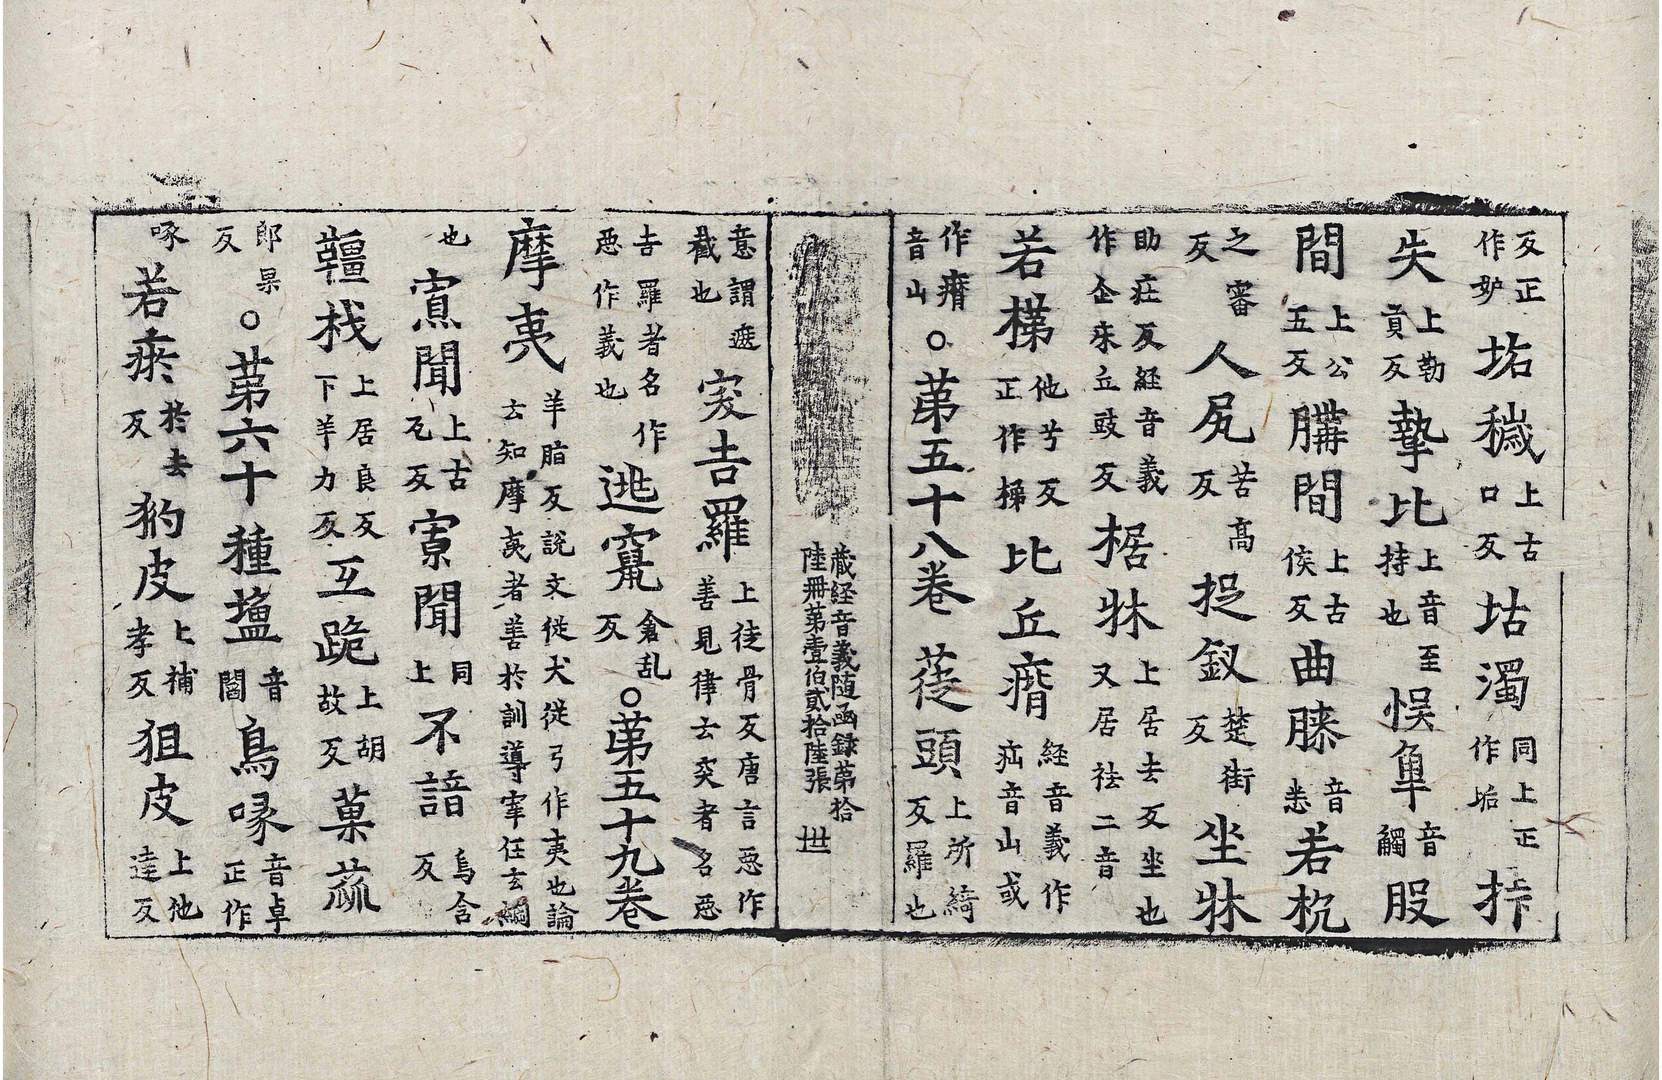 反正作妒垢穢上古口反坫濁同上正作垢捍
失上勒貢反摯比上音至持也悮𨾏音觸股
間上公五反髒間上古侯反曲膝音悉若杭
之審反人尻苦高反捉釵楚街反坐牀
助庄反経音義作企来丘豉反椐牀上居去反坐也又居袪二音
若梯他兮反正作梯比丘㾪経音義作疝音山或
作㿇音山○苐五十八卷蓰頭上所綺反羅也
藏経音義随函録苐拾陸冊苐壹伯貳拾陸張 世
意謂遮截也宎吉羅上徒骨反唐言惡作善見律云突者名惡
吉羅者名作惡作義也逃竄倉乱反○苐五十九卷
摩夷羊脂反説文從大從弓作夷也論云知摩夷者善於訓導宰任玄綱
也𡩋聞上古瓦反寡聞同上不諳烏含反
韁杙上居良反下羊力反互跪上胡故反菓蓏
郎果反○苐六十種壒音閤鳥喙音卓正作
啄若瘀於去反豹皮上補孝反狙皮上他達反